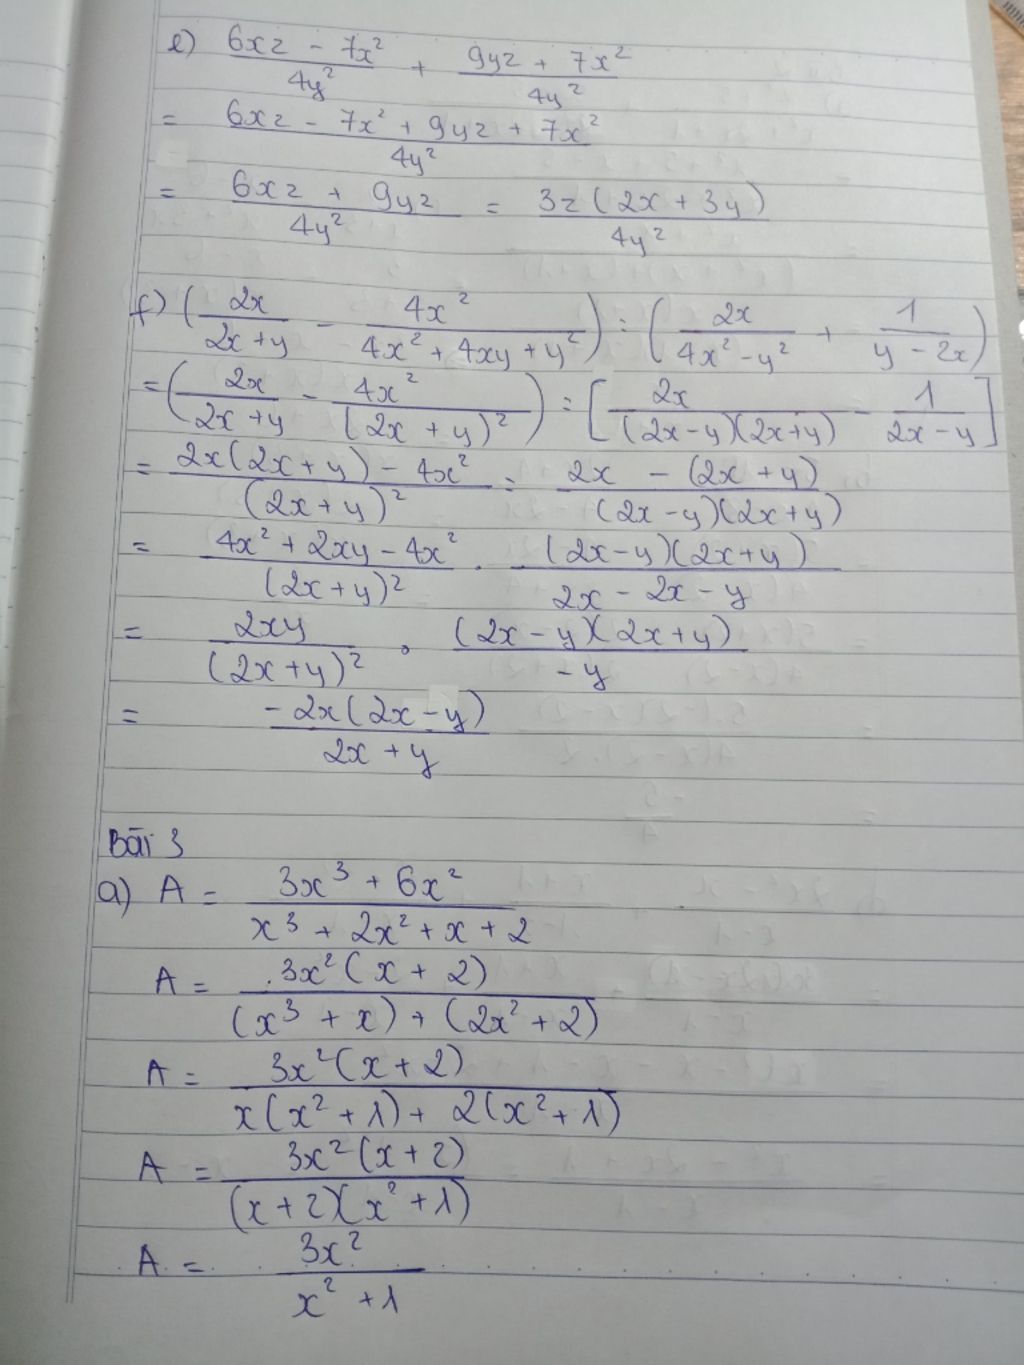 e) (6xz - 7x²)/(4y²) + (9yz + 7x²)/(4y²)
= (6xz - 7x² + 9yz + 7x²)/(4y²)
= (6xz + 9yz)/(4y²) = (3z(2x + 3y))/(4y²)
f) (2x/(2x+y) - 4x²/(4x² + 4xy + y²)) : (2x/(4x² - y²) + 1/(y - 2x))
= (2x/(2x+y) - 4x²/(2x + y)²) : [2x/((2x-y)(2x+y)) - 1/(2x-y)]
= (2x(2x+y) - 4x²)/(2x+y)² : (2x - (2x + y))/((2x-y)(2x+y))
= (4x² + 2xy - 4x²)/(2x+y)² . ((2x-y)(2x+y))/(2x - 2x - y)
= 2xy/(2x+y)² . ((2x-y)(2x+y))/(-y)
= (-2x(2x-y))/(2x+y)
Bài 3
a) A = (3x³ + 6x²)/(x³ + 2x² + x + 2)
A = (3x²(x + 2))/((x³ + x) + (2x² + 2))
A = (3x²(x+2))/(x(x² + 1) + 2(x² + 1))
A = (3x²(x+2))/((x+2)(x² + 1))
A = 3x²/(x² + 1)